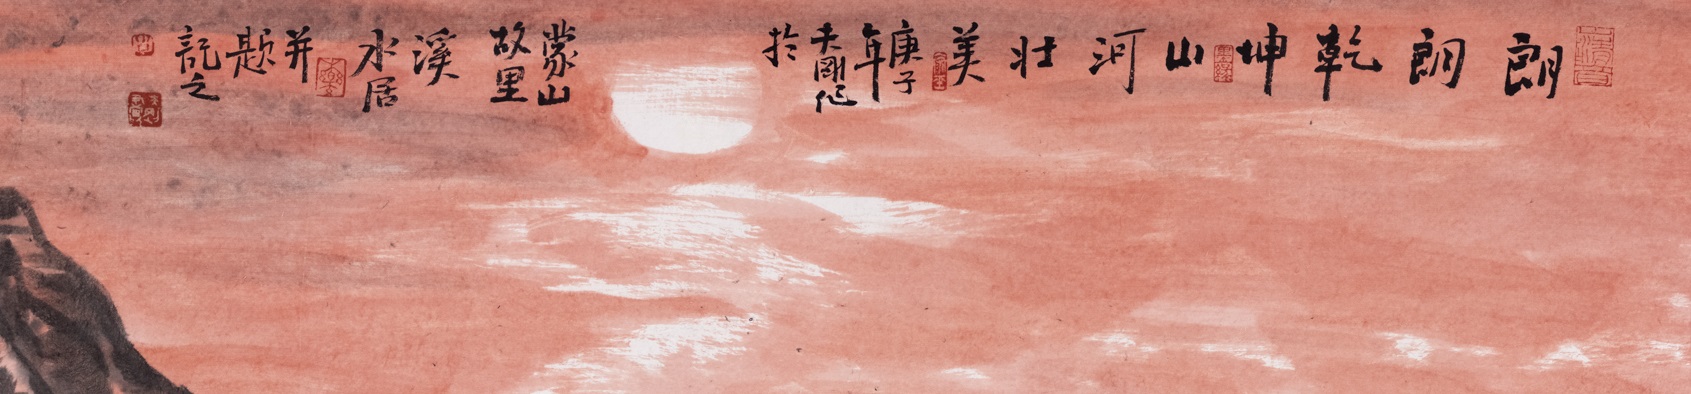 朗朗乾坤山河壮美
庚子
年
夫國作
於
蒙山
故里
溪
水居
并
题
記之